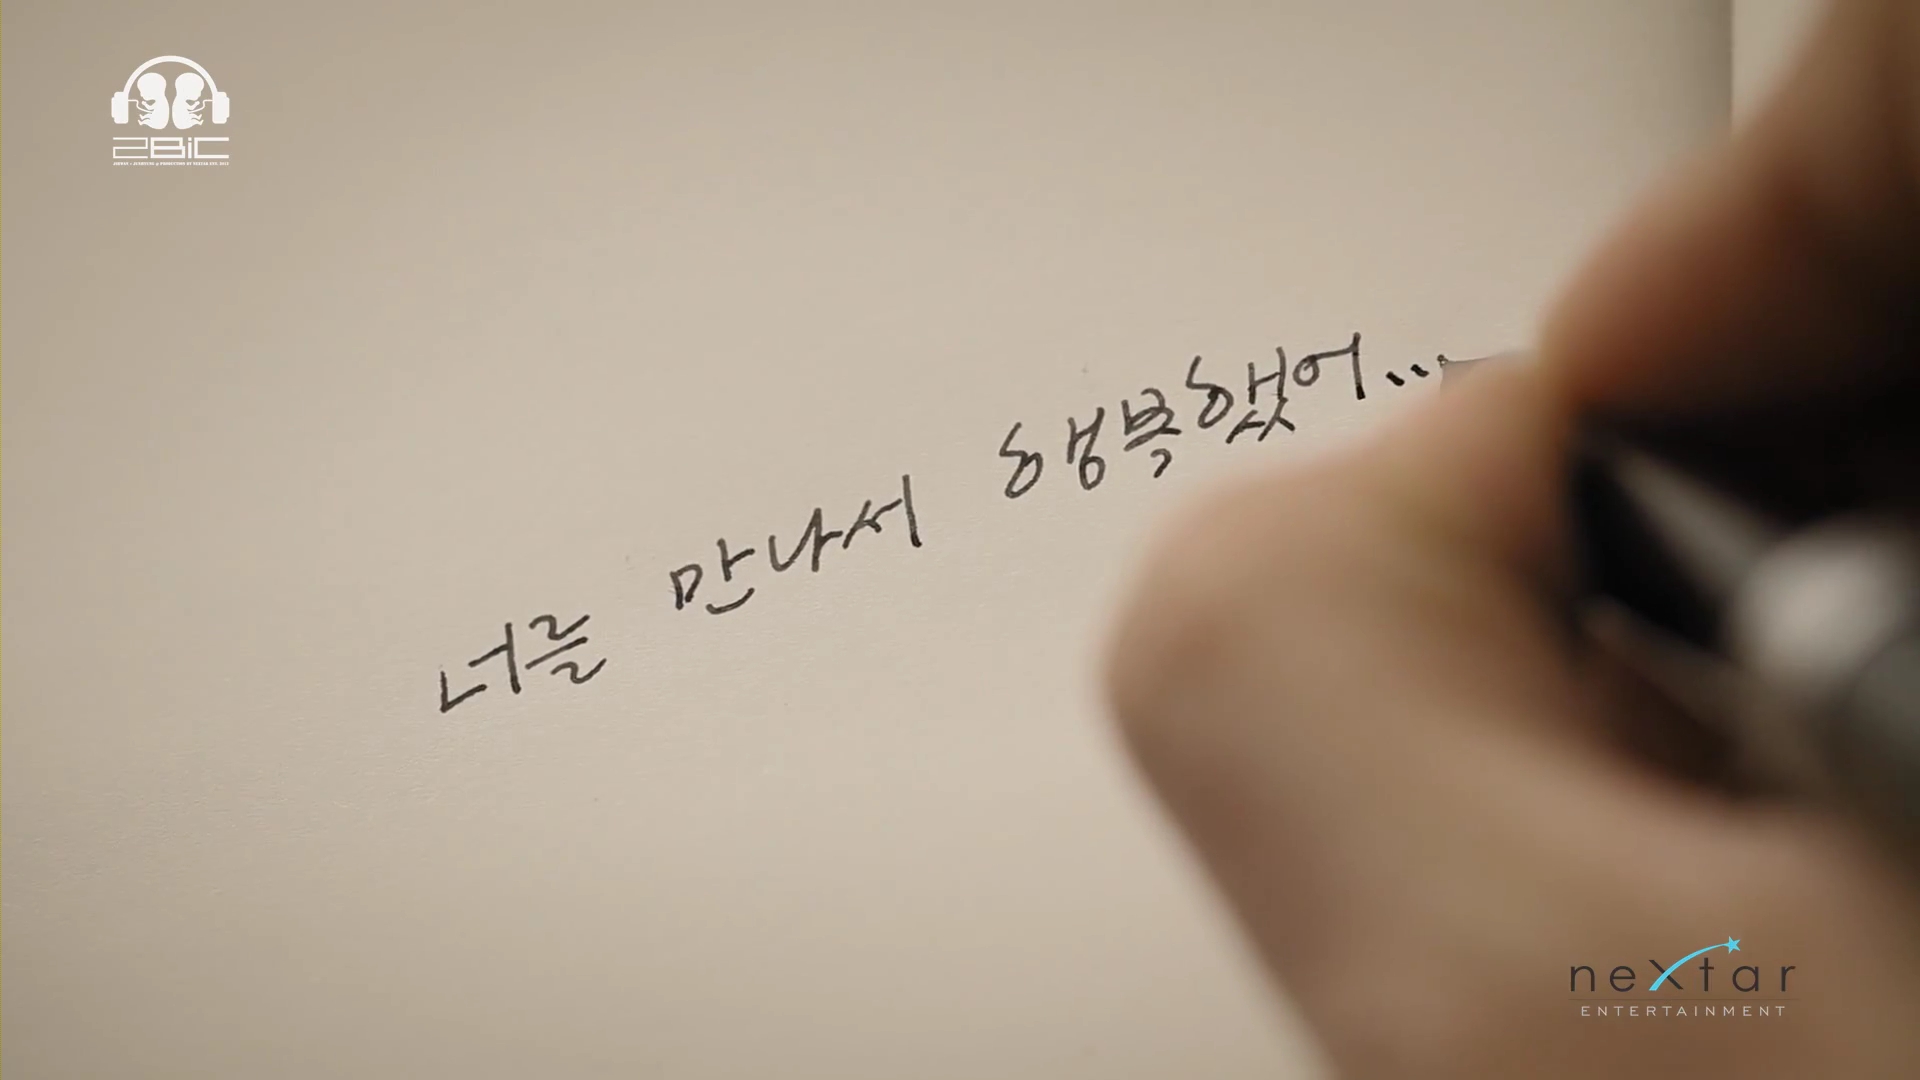 2BiC
너를 만나서 행복했어...
nextar
ENTERTAINMENT